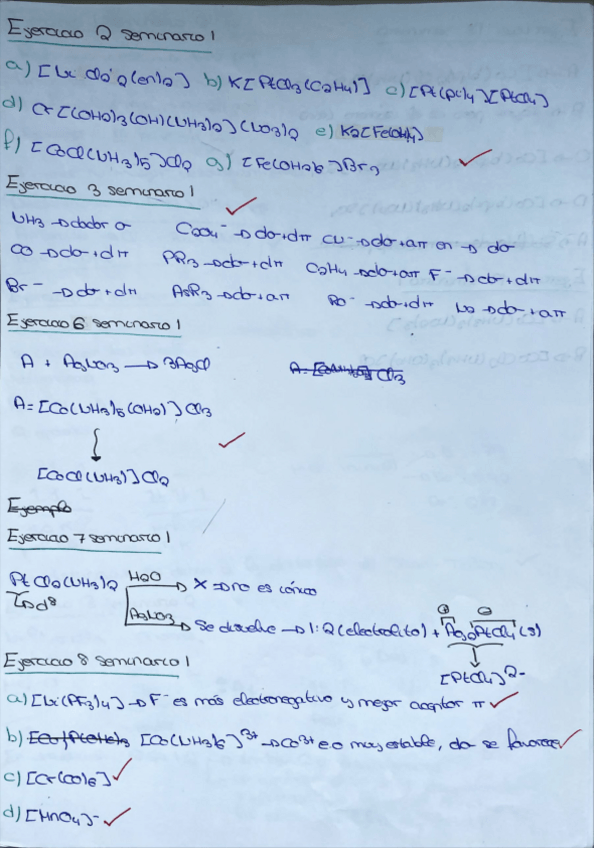 Ejercicio 2 seminario 1
a) [Ni Cl2(en)2] b) K[PtCl3(C2H4)] c) [Pt(py)4][PtCl4]
d) Cr[(OH2)3(OH)(NH3)2](NO3)2 e) K2[Fe(OH)4]
f) [CoCl(NH3)5]Cl2 g) [Fe(OH2)6]Br3
Ejercicio 3 seminario 1
NH3 → dador σ C2O4²⁻ → dσ+dπ CN⁻ → dσ+aπ en → dσ
CO → dσ+dπ PR3 → dσ+dπ C2H4 → dσ+aπ F⁻ → dσ+dπ
Br⁻ → dσ+dπ AsR3 → dσ+aπ RO⁻ → dσ+dπ NO → dσ+aπ
Ejercicio 6 seminario 1
A + AgNO3 → 3AgCl Cl3
A = [Co(NH3)5(OH2)]Cl3
[CoCl(NH3)]Cl2
Ejemplo
Ejercicio 7 seminario 1
PtCl2(NH3)2 H2O → X → no es iónico
→ d8
AgNO3 → Se disuelve → 1:2 (electrolito) + Ag2PtCl4 (s)
[PtCl4]2-
Ejercicio 8 seminario 1
a) [Ni(PF3)4] → F⁻ es más electronegativo y mejor aceptor π
b) [Co(NH3)6]3+ → Co3+ muy estable, se favorece
c) [Cr(CO)6]
d) [MnO4]-